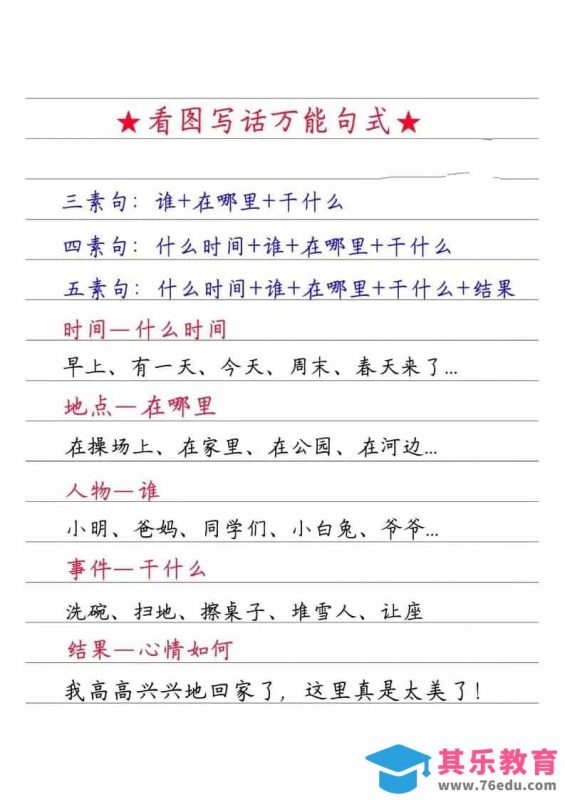 ★看图写话万能句式★
三素句：谁+在哪里+干什么
四素句：什么时间+谁+在哪里+干什么
五素句：什么时间+谁+在哪里+干什么+结果
时间—什么时间
早上、有一天、今天、周末、春天来了...
地点—在哪里
在操场上、在家里、在公园、在河边...
人物—谁
小明、爸妈、同学们、小白兔、爷爷...
事件—干什么
洗碗、扫地、擦桌子、堆雪人、让座
结果—心情如何
我高高兴兴地回家了，这里真是太美了！
其乐教育
www.76edu.com